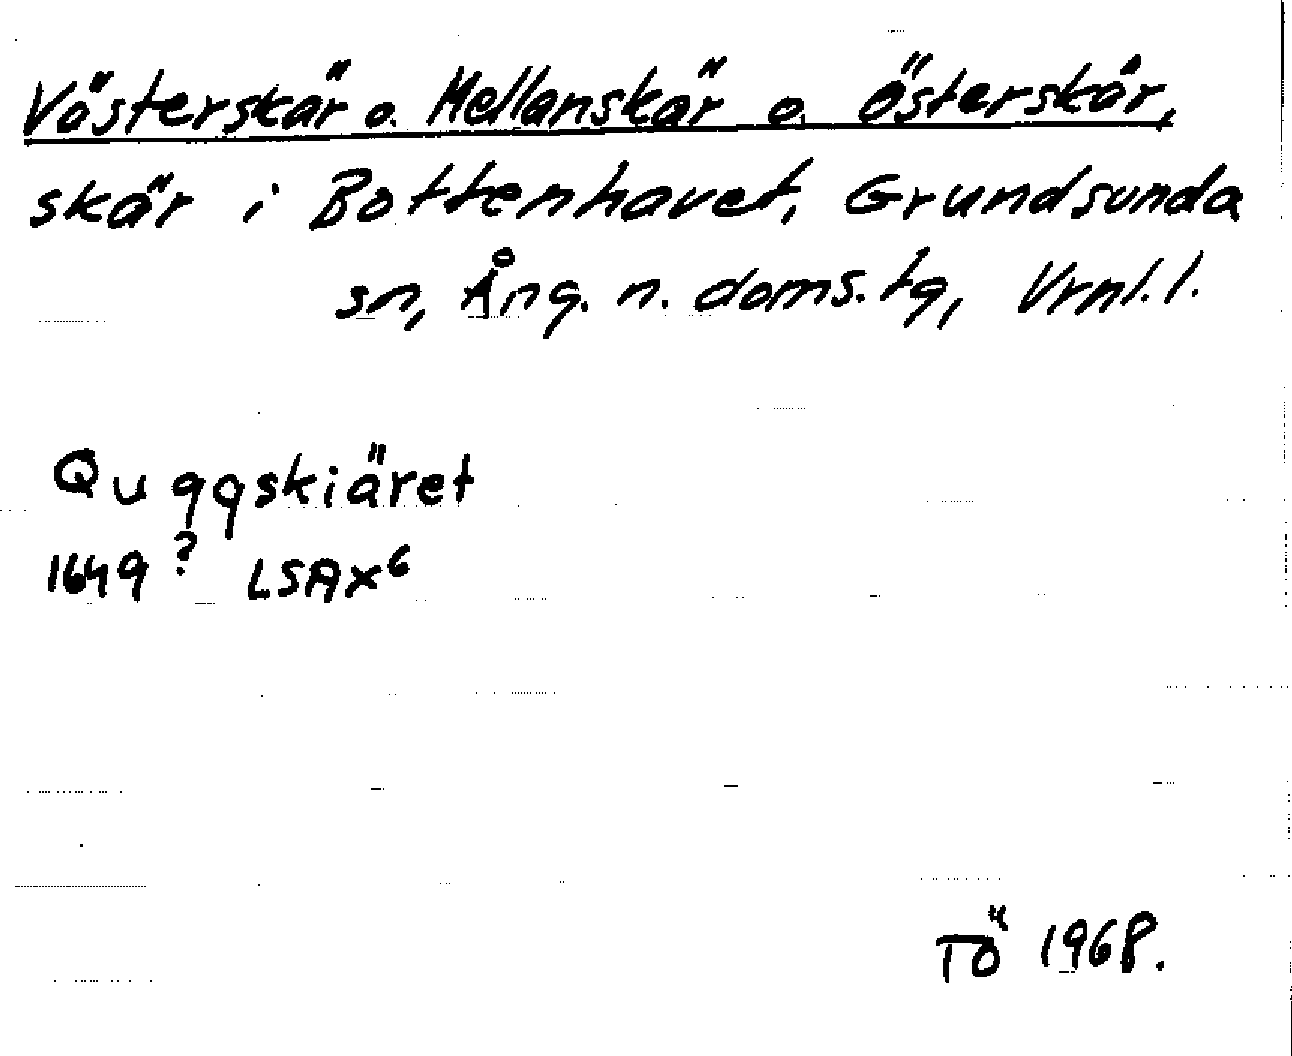 Västerskär o. Mellanskär o. Österskär,
skär i Bottenhavet, Grundsunda
sn, Ång. n. doms. tg, Vrnl. l.
Quggskiäret
1649? LSAX6
TÖ 1968.